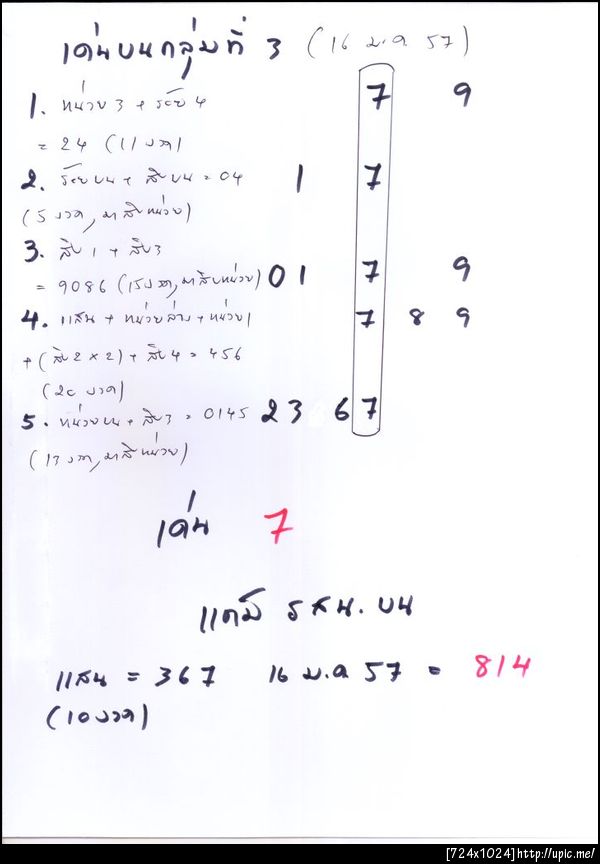 เด่นบนกลุ่มที่ 3 (16 ม.ค 57)
1. หน่วย 3 + ร้อย 4 7 9
= 24 (11 งวด)
2. ร้อยบน + สิบบน = 04 1 7
(5 งวด, มาสิบหน่วย)
3. สิบ 1 + สิบ 3
= 9086 (15งวด, มาสิบหน่วย) 0 1 7 9
4. แสน + หน่วยล่าง + หน่วย 1 7 8 9
+ (สิบ 2 x 2) + สิบ 4 = 456
(20 งวด)
5. หน่วยบน + สิบ 3 = 0145 2 3 6 7
(13 งวด, มาสิบหน่วย)
เด่น 7
แถม รสน. บน
แสน = 367 16 ม.ค 57 = 814
(10 งวด)
[724x1024]http://upic.me/